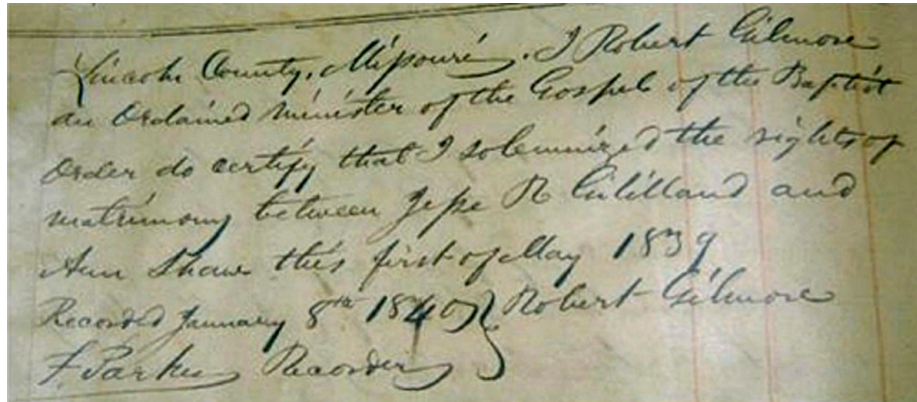 Lincoln County, Missouri. I Robert Gilmore
an Ordained minister of the Gospel of the Baptist
Order do certify that I solemnized the rights of
matrimony between Jesse R Gililland and
Ann Shaw this first of May 1839
Recorded January 8th 1840 } Robert Gilmore
F. Parker Recorder